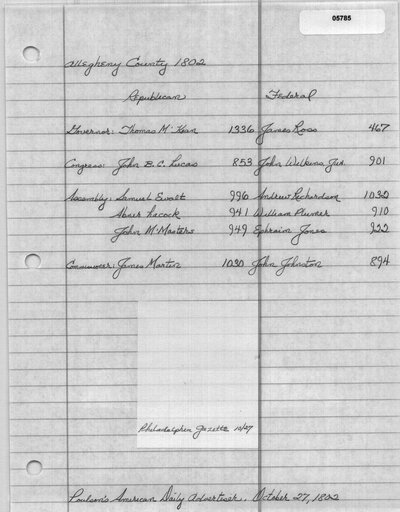 05785
Allegheny County 1802
Republican Federal
Governor: Thomas M'Kean 1336 James Ross 467
Congress: John B. C. Lucas 853 John Wilkins, Jun. 901
Assembly: Samuel Ewalt 996 Andrew Richardson 1032
Abner Lacock 941 William Plumer 910
John M'Masters 949 Ephraim Jones 922
Commissioner: James Martin 1030 John Johnston 894
Philadelphia Gazette 10/27
Poulson's American Daily Advertiser. October 27, 1802